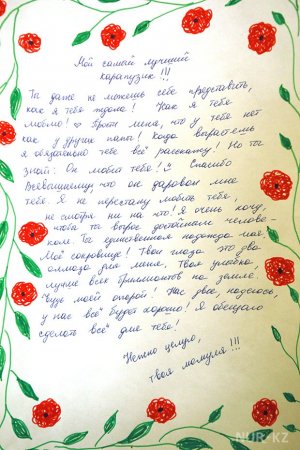 Мой самый лучший
карапузик!!!
Ты даже не можешь себе представить,
как я тебя ждала! Как я тебя
люблю! Прости меня, что у тебя нет
как у других папы! Когда вырастешь
я обязательно тебе всё расскажу! Но ты
знай: Он любит тебя! Спасибо
Всевышнему, что он даровал мне
тебя. Я не перестану любить тебя,
не смотря ни на что! Я очень хочу,
чтобы ты вырос достойным челове-
ком. Ты единственная надежда моя.
Моё сокровище! Твои глаза это два
алмаза для меня. Твоя улыбка
лучше всех бриллиантов на земле.
Будь моей опорой! Нас двое, надеюсь,
у нас всё будет хорошо! Я обещаю
сделать всё для тебя!
Нежно целую,
твоя мамуля!!!
NUR.KZ